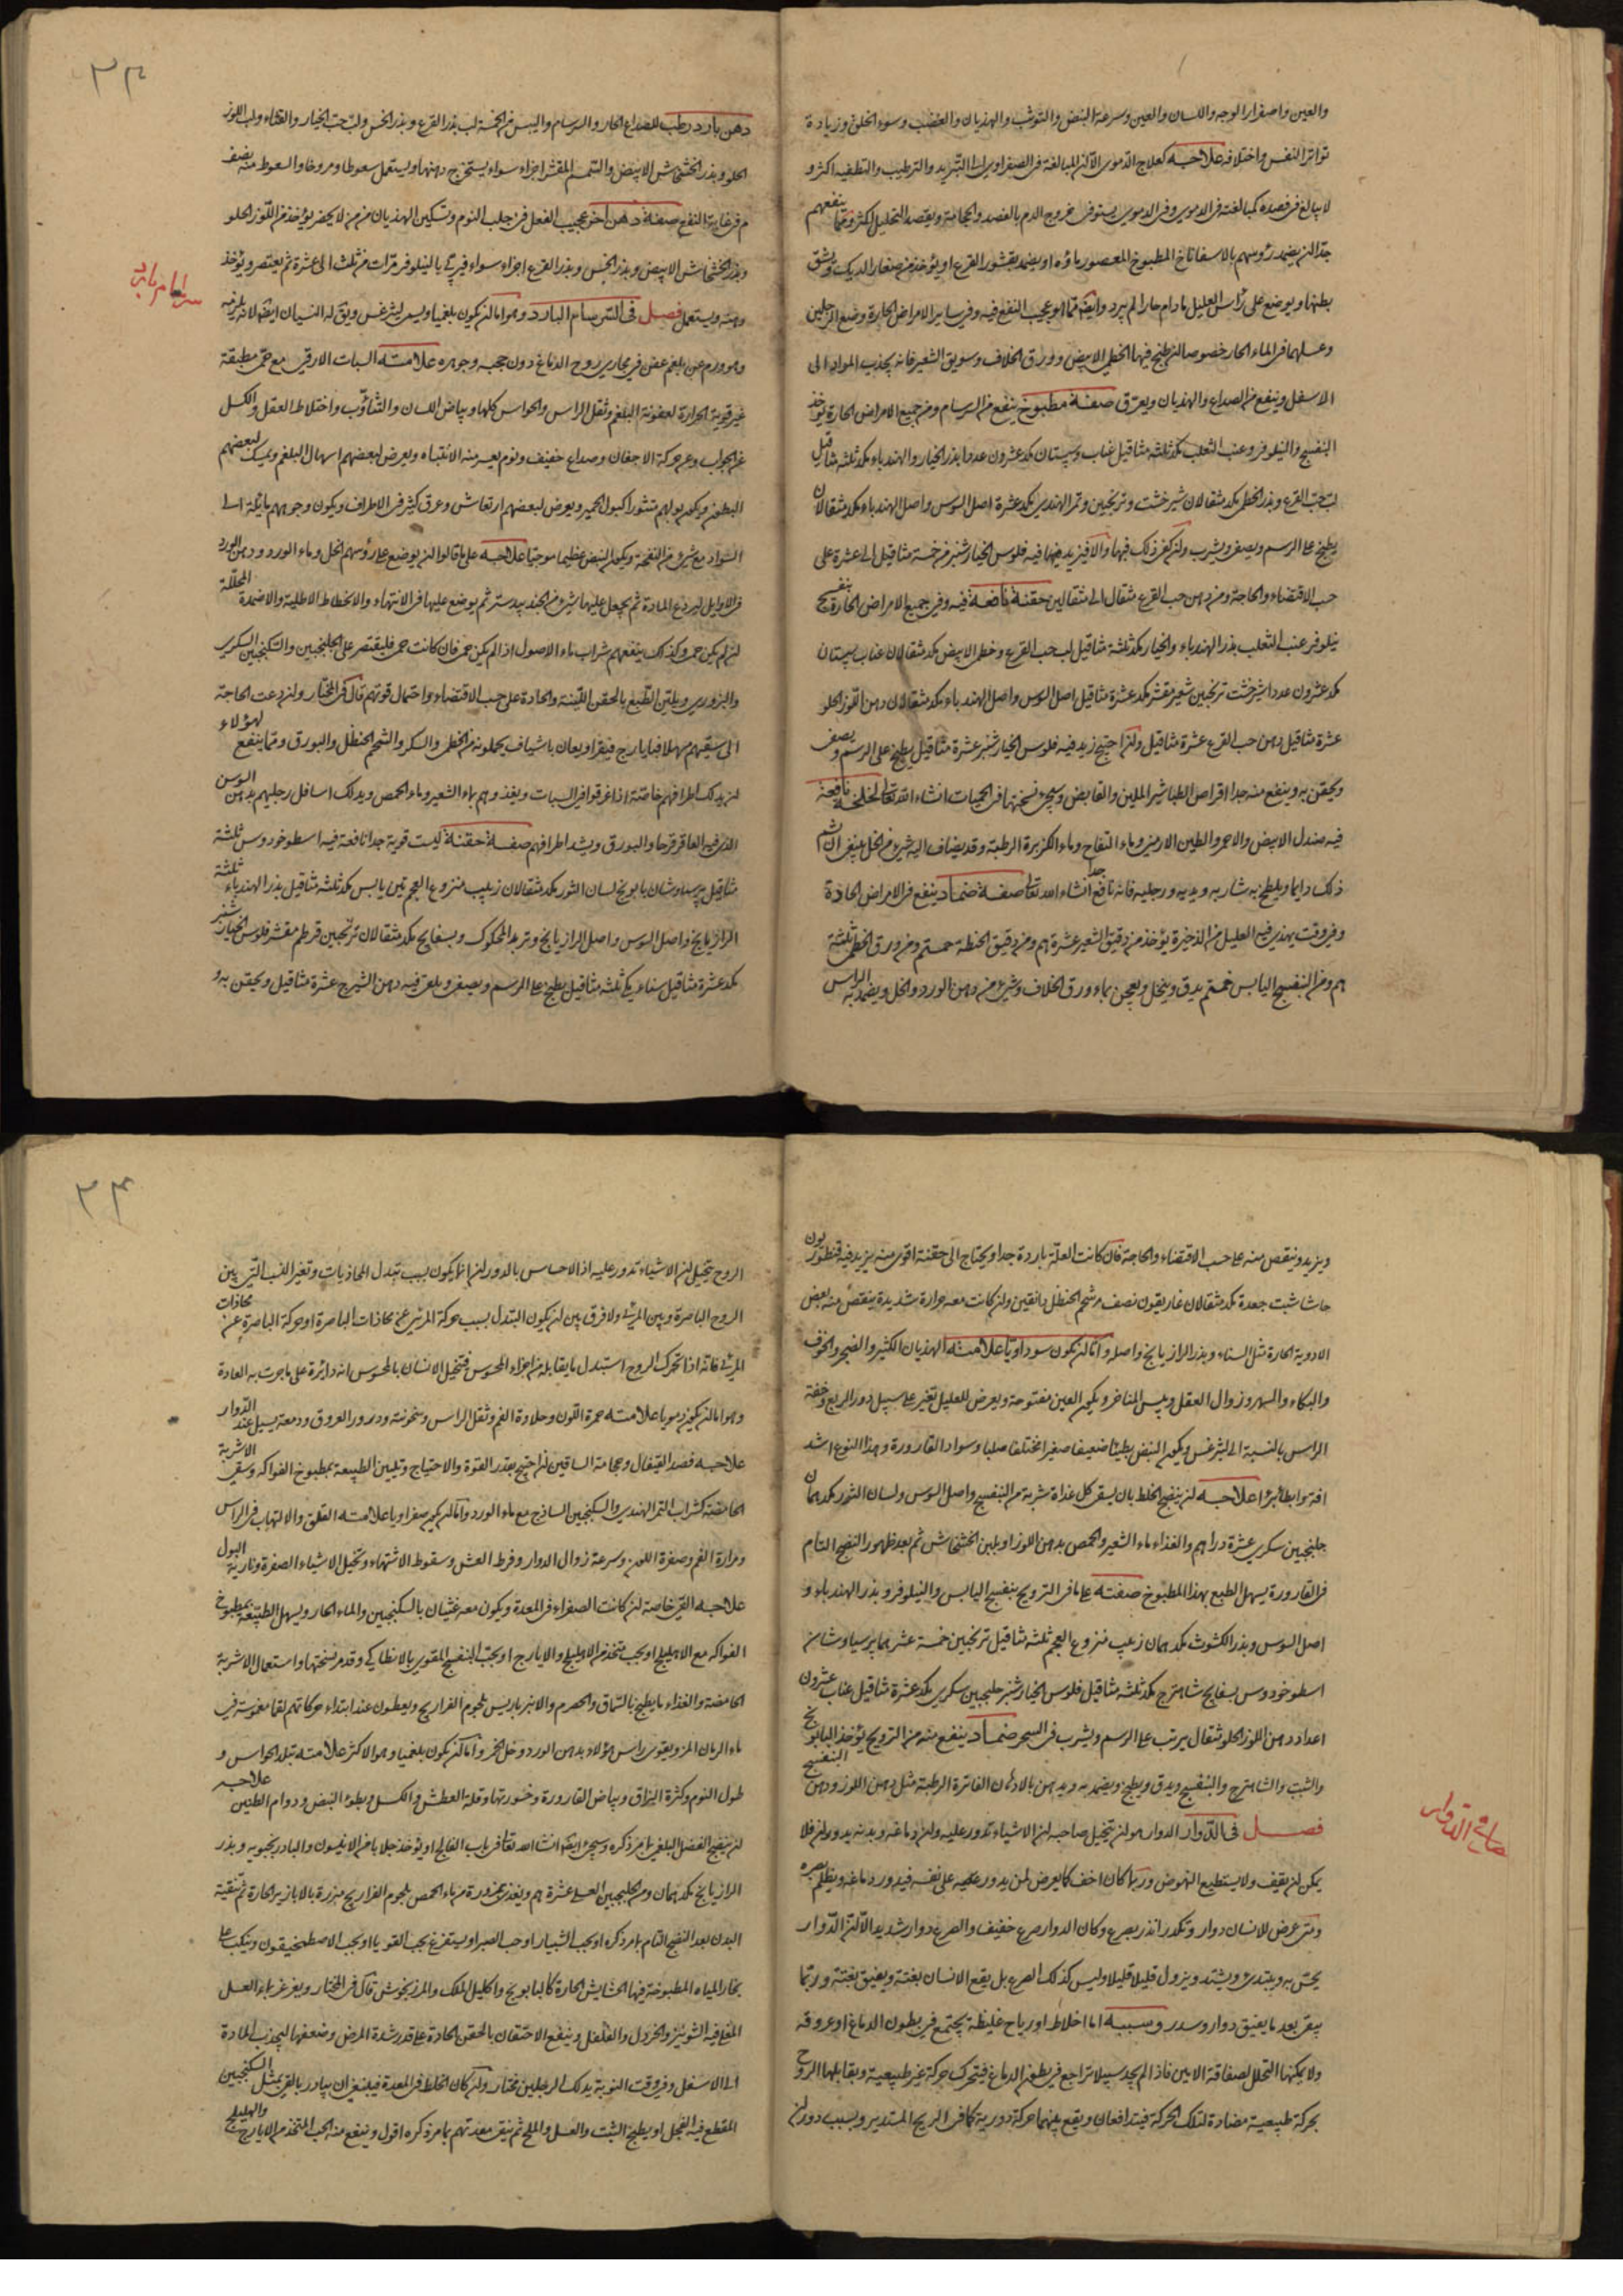 والعين واصفرار الوجه واللسان والعين وسرعة النبض والتوثب والهذيان والغضب وسوء الخلق وزيادة
تواتر النفس واختلافه علاجه كعلاج الدموى الا ان المبالغة فى الصفراوى الى التبريد والترطيب والتطفيه اكثر و
لا يبالغ فى فصده كمبالغته فى الدموى وفى الدموى يستوفى خروج الدم بالفصد والحجامة ويقصد التحليل اكثر ومما ينفعهم
جدا ان يضمد رؤسهم بالاسفاناخ المطبوخ المعصور ماؤه او يضمد بقشور القرع او يؤخذ من صغار الديك ويشق
بطنها ويوضع على رأس العليل مادام حارا لم يبرد وايضا مما هو عجيب النفع فيه وفى ساير الامراض الحارة وضع الرجلين
وغسلهما فى الماء الحار خصوصا ان طبخ فيها الخطمى الابيض وورق الخلاف وسويق الشعير فانه يجذب المواد الى
الاسفل وينفع من الصداع والهذيان ويعرق صفة مطبوخ ينفع من السرسام ومن جميع الامراض الحارة يؤخذ
البنفسج والنيلوفر وعنب الثعلب مكد ثلثه مثاقيل عناب وسپستان مكد عشرون عددا بذر الخيار والهندباء مكد ثلثه مثاقيل
لب حب القرع وبذر الخطمى مكد مثقالان شير خشت وترنجبين وتمر الهندى مكد عشرة اصل السوس واصل الهندباء مكد مثقالان
يطبخ على الرسم ويصفى ويشرب وان كفى ذلك فبها والا فيزيد فيها فيه فلوس الخيار شنبر من خمسة مثاقيل الى عشرة على
حسب الاقتضاء والحاجة ومن دهن حب القرع مثقال الى مثقالين حقنة نافعة فيه وفى جميع الامراض الحارة بنفسج
نيلوفر عنب الثعلب بذر الهندباء والخيار مكد ثلثة مثاقيل لب حب القرع وخطمى الابيض مكد مثقالان عناب سپستان
مكد عشرون عددا شير خشت ترنجبين شعير مقشر مكد عشرة مثاقيل اصل السوس واصل الهندباء مكد مثقالان دهن اللوز الحلو
عشرة مثاقيل دهن حب القرع عشرة مثاقيل وان احتيج زيد فيه فلوس الخيار شنبر عشرة مثاقيل يطبخ على الرسم ويصفى
ويحقن به وينفع منه جدا اقراص الطباشير الملين والقابض وسيجئ نسختها فى الحميات انشاء الله تعالى لخلخة نافعة
فيه صندل الابيض والاحمر والطين الارمنى وماء التفاح وماء الكزبرة الرطبة وقد يضاف اليه شئ من الخل ينبغى ان يشم
ذلك دايما ويلطخ به شاربه ويديه ورجليه فانه نافع جدا انشاء الله تعالى صفة ضماد ينفع فى الامراض الحادة
وفى وقت يهذى فيه العليل من الذخيرة يؤخذ من دقيق الشعير عشرة هم ومن دقيق الحنطة خمستم ومن ورق الخطمى ثلثة
هم ومن البنفسج اليابس خمستم يدق وينخل ويعجن بماء ورق الخلاف وشئ من دهن الورد والخل ويضمد به الراس
٣٣
دهن بارد رطب للصداع الحار والسرسام واليبس من الخمسة لب بذر القرع وبذر الخس ولب حب الخيار والقثاء ولب اللوز
الحلو وبذر الخشخاش الابيض والسمسم المقشر اجزاء سواء يستخرج دهنها ويستعمل سعوطا ومروخا والسعوط منه نصف
م فى غاية النفع صفة دهن اخر عجيب الفعل فى جلب النوم وتسكين الهذيان من من لا يحضر يؤخذ من اللوز الحلو
وبذر الخشخاش الابيض وبذر الخس وبذر القرع اجزاء سواء فيربى بالنيلوفر مرات من ثلث الى عشرة ثم يعتصر ويؤخذ
دهنه ويستعمل فصل فى السرسام البارد وهو اما ان يكون بلغميا ويسمى ليثرغس ويق له النسيان ايضا لانه يلزمه
وهو ورم عن بلغم عفن فى مجارى روح الدماغ دون حجبه وجوهره علامته السبات الارقى مع حمى مطبقة
غير قوية الحرارة لعفونة البلغم وثقل الراس والحواس كلها وبياض اللسان والتثاؤب واختلاط العقل والكسل
عن الجواب وعن حركة الاجفان وصداع خفيف ونوم يعسر منه الانتباه ويعرض لبعضهم اسهال البلغم ويمسك لبعضهم
البطن ويكون بولهم متثورا كبول الحمير ويعرض لبعضهم ارتعاش وعرق كثير فى الاطراف ويكون وجوههم مايلة الى
السواد مع شئ من النفخة ويكون النبض عظيما موجيا علاجه على ما قالوا ان يوضع على رؤسهم الخل وماء الورد ودهن الورد
فى الاوايل ليردع المادة ثم يجعل عليها شئ من الجند بيدستر ثم يوضع عليها فى الانتهاء والانحطاط الاطلية والاضمدة المحللة
ان لم يكن حمى وكذلك ينفعهم شراب ماء الاصول اذا لم يكن حمى فان كانت حمى فليقتصر على الجلنجبين والسكنجبين السكرى
والبزورى ويلين الطبع بالحقن اللينة والحادة على حسب الاقتضاء واحتمال قوتهم قال فى المختار وان دعت الحاجة
الى سقيهم مسهلا فبايارج فيقرا ويعان باشياف يحملونه من الخطمى والسكر والشحم الحنظل والبورق ومما ينفع لهؤلاء
ان يدلك اطرافهم خاصة اذا غرقوا فى السبات ويغذوهم بماء الشعير وماء الحمص ويدلك اسافل رجليهم بدهن السوسن
الذى فيه العاقر قرحا والبورق ويشد اطرافهم صفة حقنة ليست قوية جدا نافعة فيه اسطوخودوس ثلثة
مثاقيل پرسياوشان بابونج لسان الثور مكد مثقالان زبيب منزوع العجم تين يابس مكد ثلثه مثاقيل بذر الهندباء ثلثة
الرازيانج واصل السوس واصل الرازيانج وتربد المحكوك وبسفايج مكد مثقالان ترنجبين قرطم مقشر فلوس الخيار شنبر
مكد عشرة مثاقيل سناء مكى ثلثه مثاقيل يطبخ على الرسم ويصفى ويلقى فيه دهن الشيرج عشرة مثاقيل ويحقن به و
ويزيد وينقص منه على حسب الاقتضاء والحاجة فان كانت العلة باردة جدا ويحتاج الى حقنة اقوى منه يزيد فيه قنطوريون
حاشا شبت جعدة مكد مثقالان غاريقون نصف م شحم الحنظل دانقين وان كانت معه حرارة شديدة ينقص منه بعض
الادوية الحارة مثل السناء وبذر الرازيانج واصله واما ان يكون سوداويا علامته الهذيان الكثير والضجر والخوف
والبكاء والسهر وزوال العقل ويبس المناخر ويكون العين مفتوحة ويعرض للعليل تغير على سبيل دور الربع وخفة
الراس بالنسبة الى ليثرغس ويكون النبض بطيئا ضعيفا صغيرا مختلفا صلبا وسواد القارورة وهذا النوع اشد
افة وابطا برءا علاجه ان ينضج الخلط بان يسقى كل غداة شربة من البنفسج واصل السوس ولسان الثور مكد همان
جلنجبين سكرى عشرة دراهم والغذاء ماء الشعير والحمص بدهن اللوز او بلبن الخشخاش ثم بعد ظهور النضج التام
فى القارورة يسهل الطبع بهذا المطبوخ صفته على ما فى الترويح بنفسج اليابس والنيلوفر وبذر الهندباء و
اصل السوس وبذر الكشوث مكد همان زبيب منزوع العجم ثلثه مثاقيل ترنجبين خمسة عشر هما پرسياوشان
اسطوخودوس بسفايج شاهترج مكد ثلثه مثاقيل فلوس الخيار شنبر جلنجبين سكرى مكد عشرة مثاقيل عناب عشرون
اعداد دهن اللوز الحلو مثقال يرتب على الرسم ويشرب فى السحر ضماد ينفع منه من الترويح يؤخذ البابونج
والشبت والشاهترج والبنفسج ويدق ويطبخ ويضمد به ويدهن بالادهان الفاترة الرطبة مثل دهن اللوز ودهن البنفسج
فصل فى الدوار الدوار هو ان يتخيل صاحبه ان الاشياء تدور عليه وان دماغه وبدنه يدور ان فلا
يمكن ان يقف ولا يستطيع النهوض وربما كان اخف كما يعرض لمن يدور على نفسه فيدور دماغه ويظلم بصره
ومتى عرض للانسان دوار وتكدر انذر بصرع وكان الدوار صرع خفيف والصرع دوار شديد الا ان الدوار
يحس به ويبتدئ ويشتد ويزول قليلا قليلا وليس كذلك الصرع بل يقع الانسان بغتة ويفيق بغتة وربما
يبقى بعد ما يفيق دوار وسدر وسببه اما اخلاط او رياح غليظة يجتمع فى بطون الدماغ او عروقه
ولا يمكنها التحلل لصفاقة الامين فاذا لم يجد سبيلا تراجع فى بطون الدماغ فيتحرك حركة غير طبيعية ويقابلها الروح
بحركة طبيعية مضادة لتلك الحركة فيتدافعان ويقع بينهما حركة دورية كما فى الريح المستدير وبسبب دوران
فى الدوار
٣٤
الروح يتخيل ان الاشياء تدور عليه اذ الاحساس بالدوران انما يكون بسبب تبدل المحاذيات وتغير النسب التى بين
الروح الباصرة وبين المرئى ولا فرق بين ان يكون التبدل بسبب حركة المرئى عن محاذات الباصرة او حركة الباصرة عن محاذات
المرئى فانه اذا تحرك الروح استبدل ما يقابله من اجزاء المحسوس فتخيل الانسان بالمحسوس انه دائرة على ما جرت به العادة
وهو اما ان يكون دمويا علامته حمرة اللون وحلاوة الفم وثقل الراس وسخونته ودرور العروق ودمعة يسيل عند الدوار
علاجه فصد القيفال وحجامة الساقين ان احتيج بقدر القوة والاحتياج وتليين الطبيعة بمطبوخ الفواكه وسقى الاشربة
الحامضة كشراب التمر الهندى والسكنجبين الساذج مع ماء الورد واما ان يكون صفراويا علامته القلق والالتهاب فى الراس
ومرارة الفم وصفرة اللون وسرعة زوال الدوار وفرط العطش وسقوط الاشتهاء وتخيل الاشياء الصفرة ونارية البول
علاجه القئ خاصة ان كانت الصفراء فى المعدة ويكون معه غثيان بالسكنجبين والماء الحار ويسهل الطبيعة بمطبوخ
الفواكه مع الاهليلج او بحب متخذ من الاهليلج والايارج او بحب البنفسج المقوى بالانطاكى وقد مر نسختها واستعمال الاشربة
الحامضة والغذاء ما يطبخ بالسماق والحصرم والانبرباريس بلحوم الفراريج ويعطون عند ابتداء حركاتهم لقما مغموسة فى
ماء الرمان المز ويقوى راس هؤلاء بدهن الورد وخل الخمر واما ان يكون بلغميا وهو الاكثر علامته تبلد الحواس و
طول النوم وكثرة البزاق وبياض القارورة وخثورتها وقلة العطش والكسل وبطوء النبض ودوام الطنين علاجه
ان ينضج الفضل البلغمى بما مر ذكره وسيجئ ايضا انشاء الله تعالى فى باب الفالج او يؤخذ جلابا من الانيسون والبادرنجبويه وبذر
الرازيانج مكد همان ومن الجلنجبين العسلى عشرة هم ويغذى بمزورة من ماء الحمص بلحوم الفراريج مبزرة بالابازير الحارة ثم تنقية
البدن بعد النضج التام بما مر ذكره او بحب الشبيار او حب الصبر او يستفرغ بحب القوقايا او بحب الاصطمخيقون وينكب على
بخار المياه المطبوخة فيها الحشايش الحارة كالبابونج واكليل الملك والمرزنجوش قال فى المختار ويغرغر بماء العسل
المغلى فيه الشونيز والخردل والفلفل وينفع الاحتقان بالحقن الحادة على قدر شدة المرض وضعفها ليجذب المادة
الى الاسفل وفى وقت النوبة يدلك الرجلين مختار وان كان الخلط فى المعدة فينبغى ان يبادر بالقئ بمثل السكنجبين
المقطع فيه الفجل او بطبخ الشبت والعسل والملح ثم ينقى معدتهم بما مر ذكره اقول وينفع منه الحب المتخذ من الايارج والهليلج